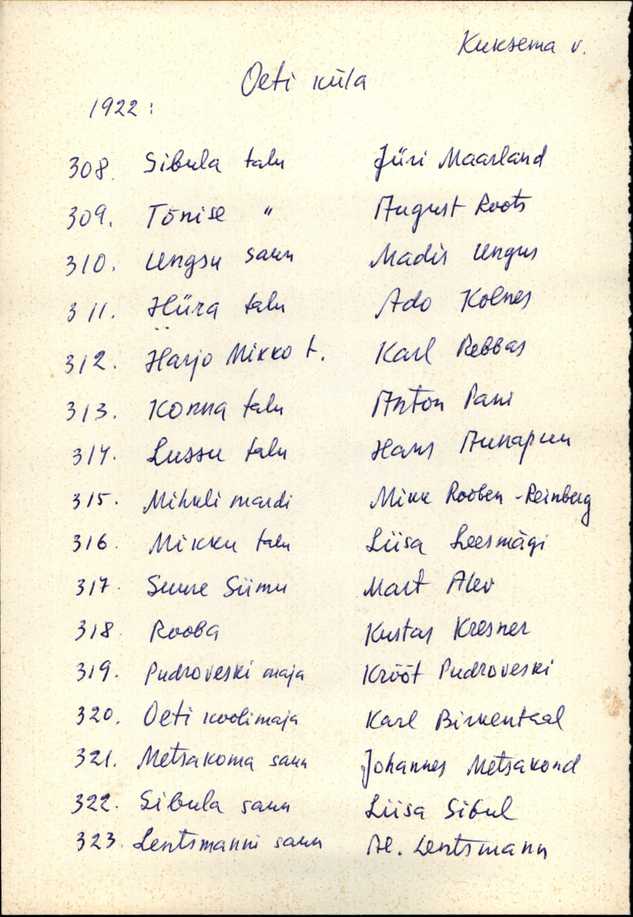 Kuksema v.
Oeti küla
1922:
308. Sibula talu Jüri Maarland
309. Tõnise " August Roots
310. Ungsu saun Madis Ungus
311. Hüra talu Ado Kolnes
312. Harjo Mikko t. Karl Rebbas
313. Konna talu Anton Pani
314. Lussu talu Hans Aunapuu
315. Mihkli mardi Mikk Rooben-Reinberg
316. Mikku talu Liisa Leesmägi
317. Suure Siimu Mart Alev
318. Rooba Kustas Kresner
319. Pudroveski maja Krõõt Pudroveski
320. Oeti koolimaja Karl Birkentaal
321. Metsakoma saun Johannes Metsakond
322. Sibula saun Liisa Sibul
323. Lentsmanni saun Al. Lentsmann